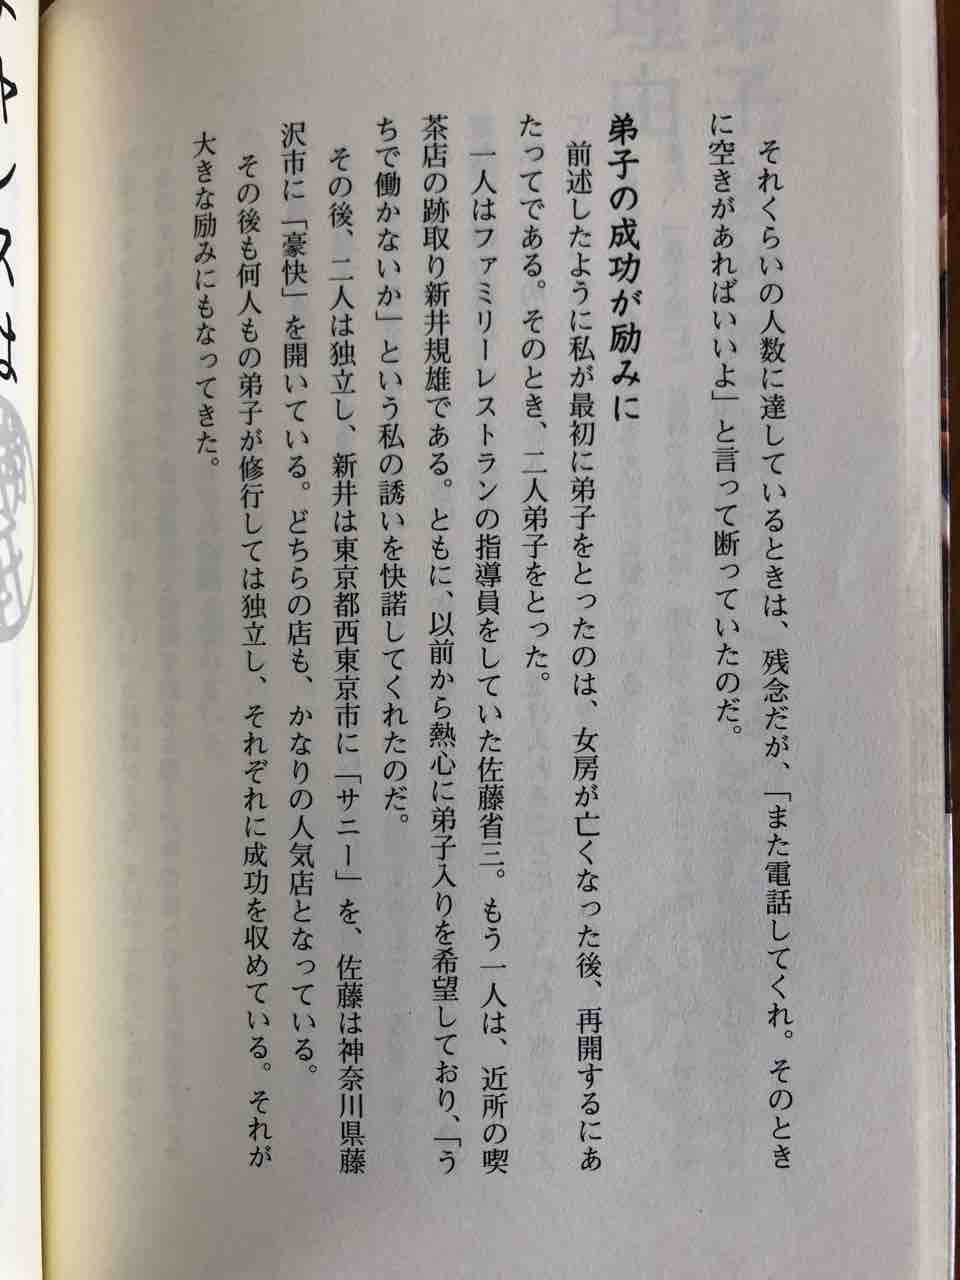 それくらいの人数に達しているときは、残念だが、「また電話してくれ。そのとき
に空きがあればいいよ」と言って断っていたのだ。
弟子の成功が励みに
前述したように私が最初に弟子をとったのは、女房が亡くなった後、再開するにあ
たってである。そのとき、二人弟子をとった。
一人はファミリーレストランの指導員をしていた佐藤省三。もう一人は、近所の喫
茶店の跡取り新井規雄である。ともに、以前から熱心に弟子入りを希望しており、「う
ちで働かないか」という私の誘いを快諾してくれたのだ。
その後、二人は独立し、新井は東京都西東京市に「サニー」を、佐藤は神奈川県藤
沢市に「豪快」を開いている。どちらの店も、かなりの人気店となっている。
その後も何人もの弟子が修行しては独立し、それぞれに成功を収めている。それが
大きな励みにもなってきた。
ャンスは